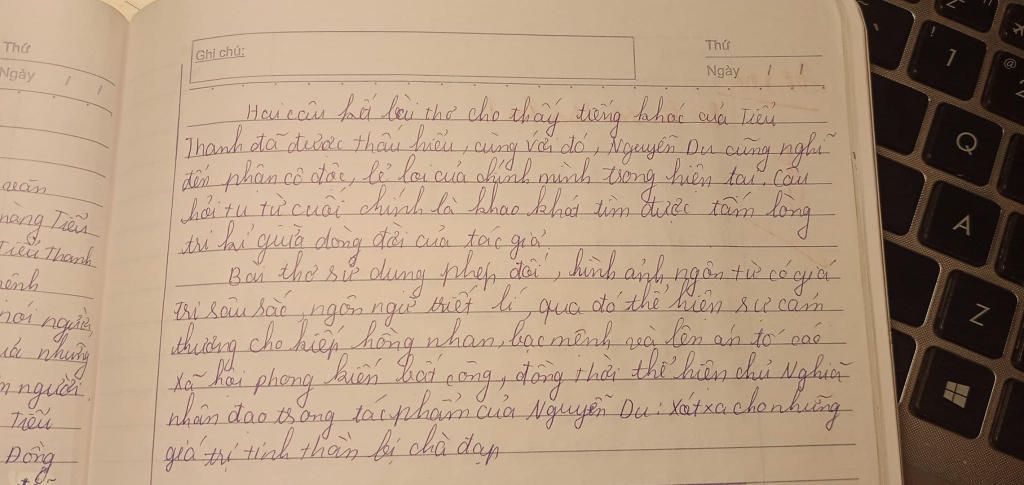 Thứ
Ngày / /
quán
nàng Tiểu
Tiểu Thanh
mệnh
nơi người
và những
người
Tiểu
Đồng
Ghi chú:
Thứ
Ngày / /
Hai câu kết bài thơ cho thấy tiếng khóc của Tiểu
Thanh đã được thấu hiểu, cùng với đó, Nguyễn Du cũng nghĩ
đến phận cô độc, lẻ loi của chính mình trong hiện tại. Câu
hỏi tu từ cuối chính là khao khát tìm được tấm lòng
tri kỉ giữa dòng đời của tác giả.
Bài thơ sử dụng phép đối, hình ảnh ngôn từ có giá
trị sâu sắc, ngôn ngữ triết lí, qua đó thể hiện sự cảm
thương cho kiếp hồng nhan, bạc mệnh và lên án tố cáo
xã hội phong kiến bất công, đồng thời thể hiện chủ nghĩa
nhân đạo trong tác phẩm của Nguyễn Du: Xót xa cho những
giá trị tinh thần bị chà đạp
!
1
@
2
Q
A
Z